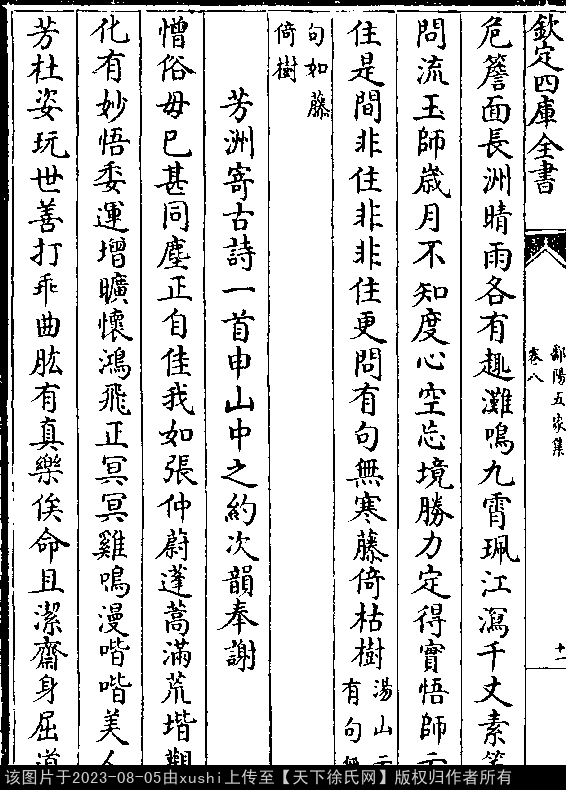 欽定四庫全書
鄱陽五家集
卷八
十一
危簷面長洲晴雨各有趣灘鳴九霄珮江瀉千丈素
問流玉師歲月不知度心空忘境勝力定得實悟師
住是間非住非非住更問有句無寒藤倚枯樹湯山
有句
句如藤
倚樹
芳洲寄古詩一首申山中之約次韻奉謝
憎俗毋已甚同塵正自佳我如張仲蔚蓬蒿滿荒堦觀
化有妙悟委運增曠懷鴻飛正冥冥雞鳴漫喈喈美人
芳杜姿玩世善打乖曲肱有真樂俟命且潔齋身屈道
该图片于2023-08-05由xushi上传至【天下徐氏网】版权归作者所有